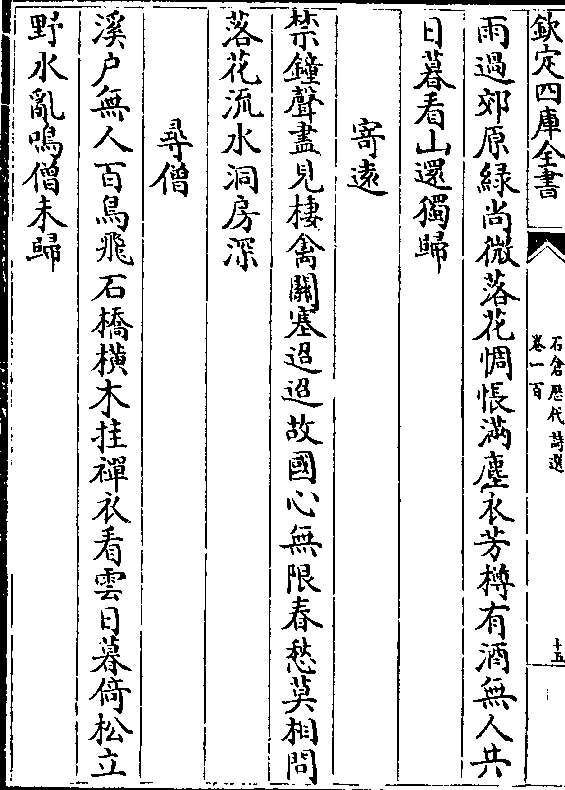 欽定四庫全書
石倉歷代詩選
卷一百
十五
雨過郊原緑尚微落花惆悵滿塵衣芳樽有酒無人共
日暮看山還獨歸
寄逺
禁鐘聲盡見棲禽關塞迢迢故國心無限春愁莫相問
落花流水洞房深
尋僧
溪户無人百鳥飛石橋橫木挂禪衣看雲日暮倚松立
野水亂鳴僧未歸